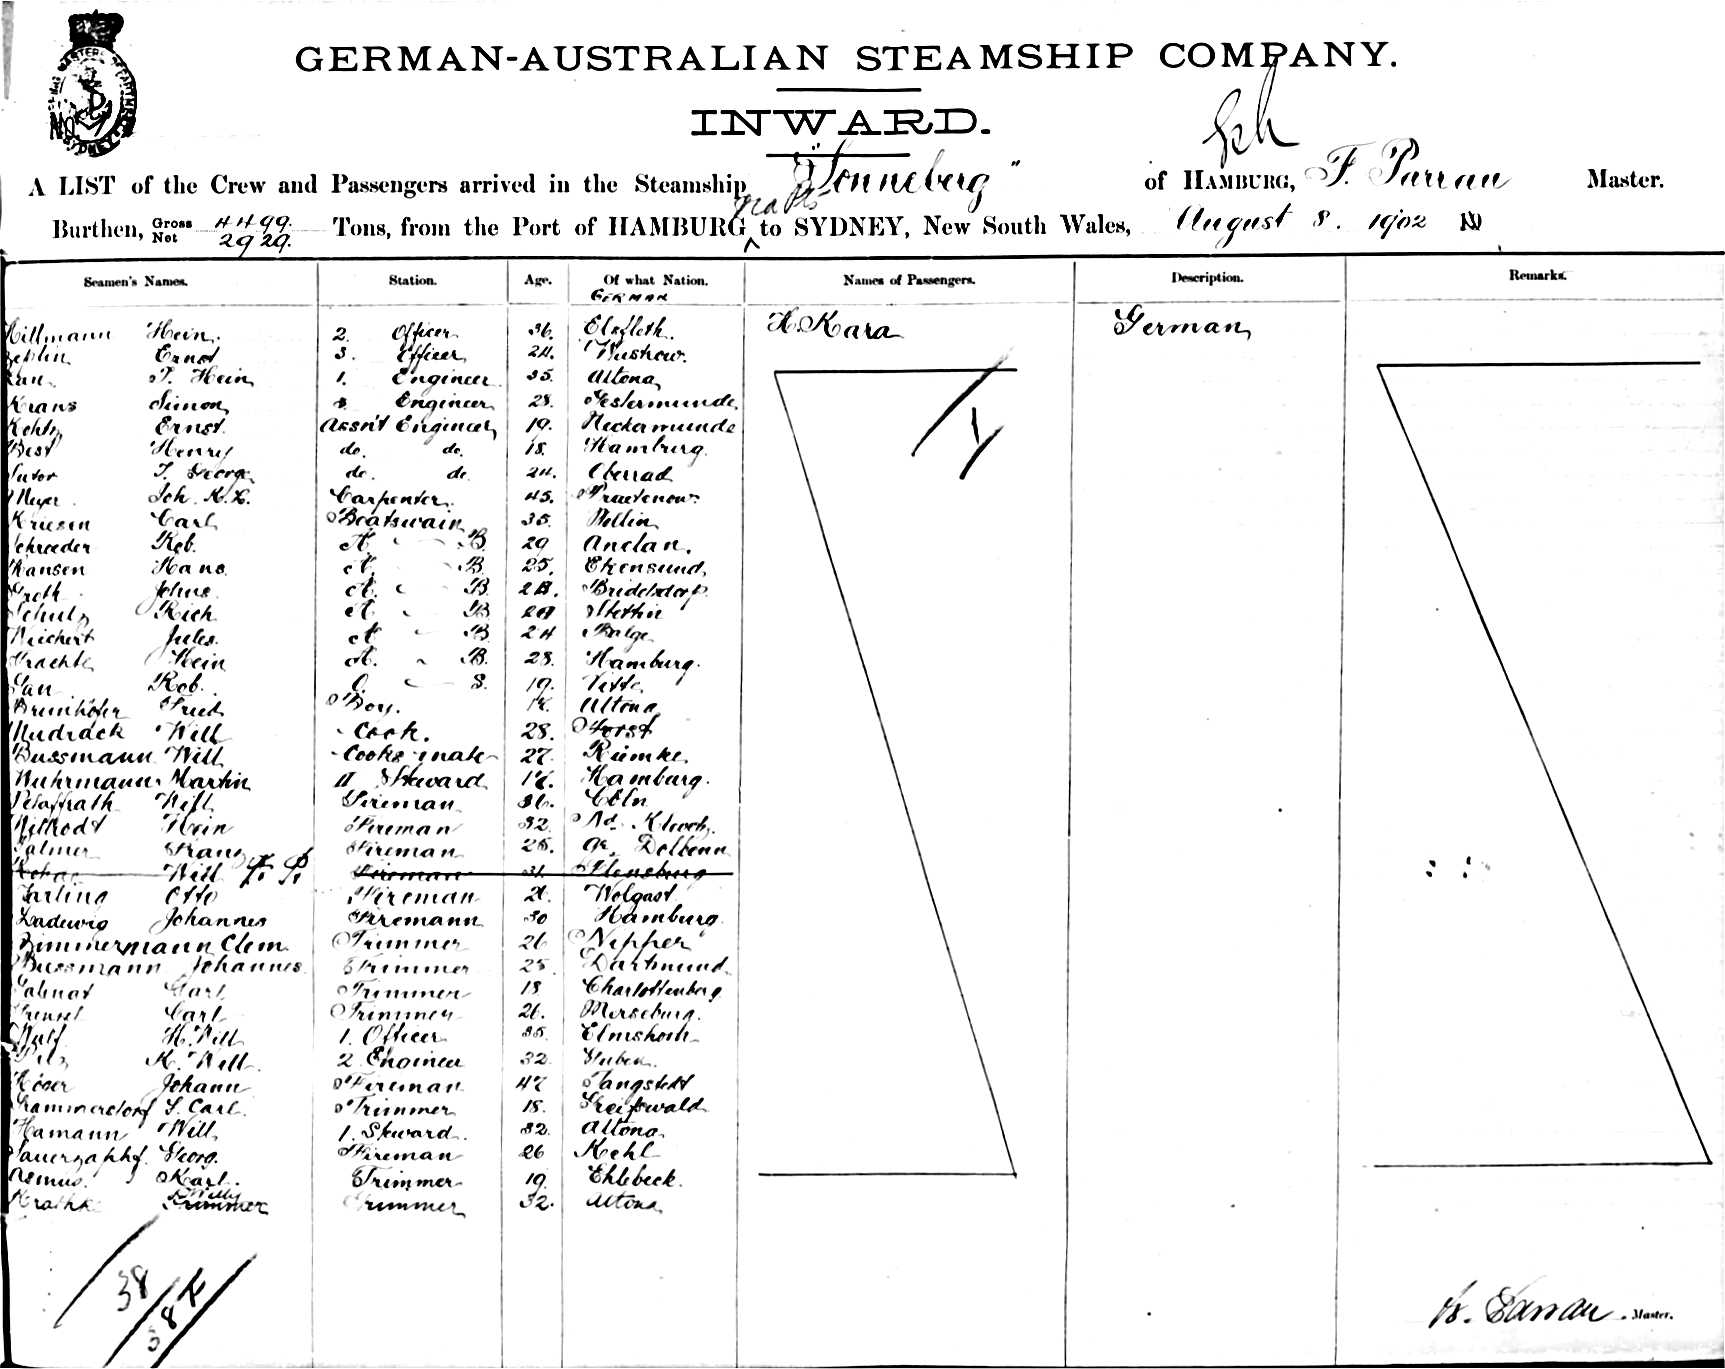 GERMAN-AUSTRALIAN STEAMSHIP COMPANY.
INWARD.
A LIST of the Crew and Passengers arrived in the Steamship "Sonneberg" of HAMBURG, F. Parrau Master.
Burthen, Gross 4499. Net 2929. Tons, from the Port of HAMBURG to SYDNEY, New South Wales, August 8. 1902
Seamen's Names. Station. Age. Of what Nation. Names of Passengers. Description. Remarks.
GERMAN
Hillmann Hein 2. Officer 36. Elsfleth. H. Kara German
Ernst 3. Officer 24. Wustrow.
J. Hein 1. Engineer 35. Altona
Krans Simon 3 Engineer 28. Gestermunde
Ernst. Assn't Engineer 19. Ueckermunde
Best Henry do. do. 18. Hamburg.
Sutor J. George do. do. 24. Oberrad
Meyer Joh. Carpenter. 45.
Kriesen Carl Boatswain 35. Wollin
Schroeder Rob. A. B. 29 Anclan.
Hansen Hans A. B. 25. Ekensund
Groth Johns. A. B. 23. Bridelsdorf
Schulz Rich A. B. 29 Stettin
Weichert Jules. A B. 24 Balge
Hein A. B. 28. Hamburg.
Rob. O. S. 19. Vitte
Fried Boy. Altona
Mudrack Will Cook. 28. Forst
Bussmann Will Cooks mate 27. Riemke
Wuhrmann Martin II Steward 17. Hamburg.
Pfaffrath Will Fireman 36. Cöln
Hein Fireman 32.
Palmer Franz Fireman 25.
Will Fireman 31. Flensburg
Otto Fireman Wolgast
Ladewig Johannes Firemann 30 Hamburg.
Zimmermann Clem. Trimmer 26 Nipper
Bussmann Johannes Trimmer 25 Dartmund
Carl Trimmer 18. Charlottenberg
Carl Trimmer 26. Merseburg.
Wulf H. Will 1. Officer 35. Elmshorn
K. Will 2 Engineer 32. Guben
Johann Fireman 47 Tangstedt
Grammersdorf J. Carl. Trimmer 18. Greifswald
Hamann Will 1. Steward. 32. Altona
Sauerzapf. Georg. Fireman 26 Kehl
Asmus. Karl. Trimmer 19 Ehlebeck.
Willy Trimmer Trimmer 32. Altona
38
38
Parrau Master.